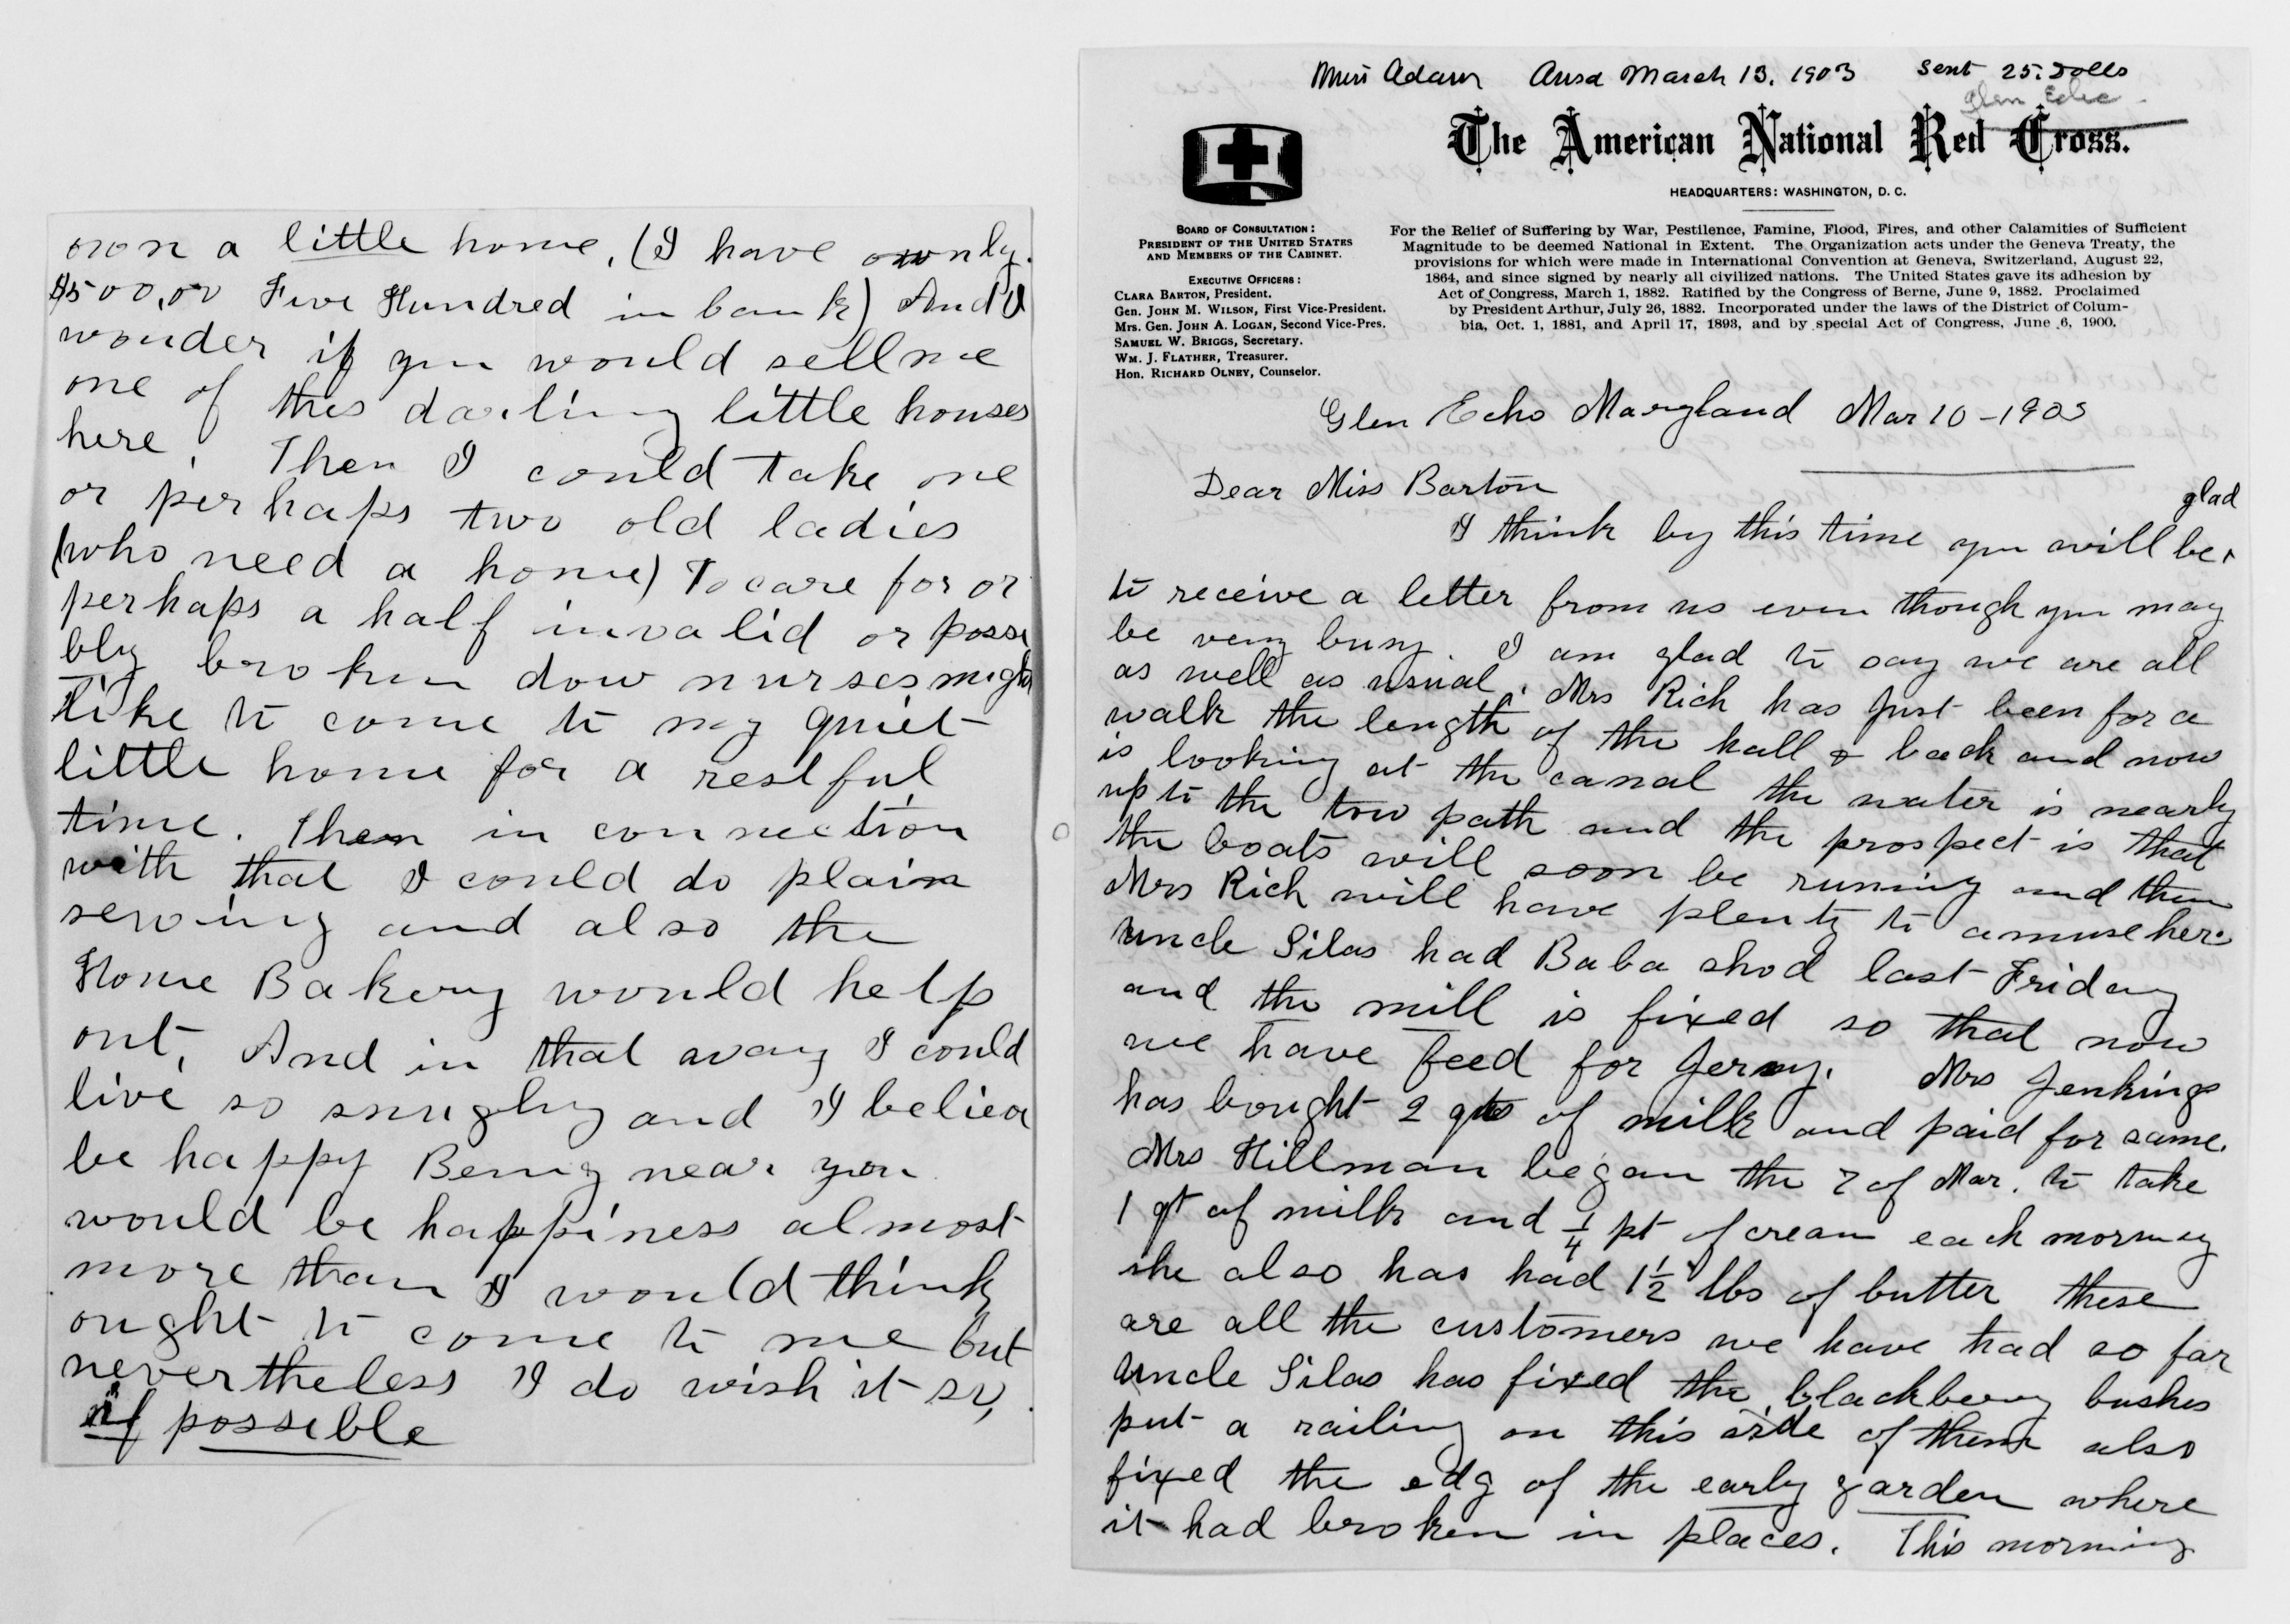 own a little home, (I have ownly
$500,00 Five Hundred in bank) And I
wonder if you would sell me
one of this darling little houses
here. Then I could take one
or perhaps two old ladies
(who need a home) To care for or
perhaps a half invalid or possi
bly broken dow nurses might
like to come to my quiet
little home for a restful
time. Then in connection
with that I could do plain
sewing and also the
Home Bakery would help
out. And in that way I could
live so snugly and I believe
be happy Being near you
would be happiness almost
more than I would think
ought to come to me but
nevertheless I do wish it so,
if possible
Miss Adam Ansd March 13. 1903 Sent 25. Dolls
Glen Echo
The American National Red Cross.
HEADQUARTERS: WASHINGTON, D. C.
BOARD OF CONSULTATION:
PRESIDENT OF THE UNITED STATES
AND MEMBERS OF THE CABINET.
EXECUTIVE OFFICERS:
CLARA BARTON, President.
Gen. JOHN M. WILSON, First Vice-President.
Mrs. Gen. JOHN A. LOGAN, Second Vice-Pres.
SAMUEL W. BRIGGS, Secretary.
WM. J. FLATHER, Treasurer.
Hon. RICHARD OLNEY, Counselor.
For the Relief of Suffering by War, Pestilence, Famine, Flood, Fires, and other Calamities of Sufficient
Magnitude to be deemed National in Extent. The Organization acts under the Geneva Treaty, the
provisions for which were made in International Convention at Geneva, Switzerland, August 22,
1864, and since signed by nearly all civilized nations. The United States gave its adhesion by
Act of Congress, March 1, 1882. Ratified by the Congress of Berne, June 9, 1882. Proclaimed
by President Arthur, July 26, 1882. Incorporated under the laws of the District of Colum-
bia, Oct. 1, 1881, and April 17, 1893, and by special Act of Congress, June 6, 1900.
Glen Echo Maryland Mar 10 - 1903
Dear Miss Barton
glad
I think by this time you will be
to receive a letter from us even though you may
be very busy. I am glad to say we are all
as well as usual. Mrs Rich has just been for a
walk the length of the hall & back and now
is looking at the canal the water is nearly
up to the tow path and the prospect is that
the boats will soon be runing and then
Mrs Rich will have plenty to amuse her.
Uncle Silas had Baba shod last Friday
and the mill is fixed so that now
we have feed for Jersy. Mrs Jenkings
has bought 2 qts of milk and paid for same.
Mrs Hillman began the 7 of Mar. to take
1 qt of milk and 1/4 pt of cream each morning
she also has had 1½ lbs of butter these
are all the customers we have had so far
Uncle Silas has fixed the blackberry bushes
put a railing on this side of them also
fixed the edg of the early garden where
it had broken in places. This morning